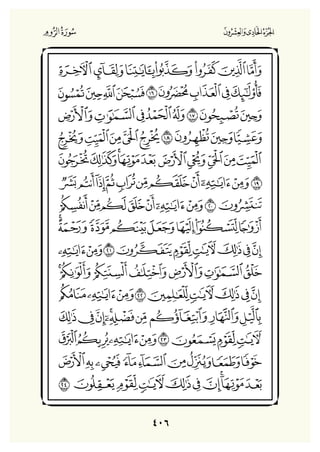 الجُزْءُ الحَادِى وَالعِشْرُونَ سُورَةُ الرُّومِ
وَأَمَّا ٱلَّذِينَ كَفَرُوا۟ وَكَذَّبُوا۟ بِـَٔايَـٰتِنَا وَلِقَآئِ ٱلْـَٔاخِرَةِ
فَأُو۟لَـٰٓئِكَ فِى ٱلْعَذَابِ مُحْضَرُونَ ١٦ فَسُبْحَـٰنَ ٱللَّهِ حِينَ تُمْسُونَ
وَحِينَ تُصْبِحُونَ ١٧ وَلَهُ ٱلْحَمْدُ فِى ٱلسَّمَـٰوَٰتِ وَٱلْأَرْضِ
وَعَشِيًّا وَحِينَ تُظْهِرُونَ ١٨ يُخْرِجُ ٱلْحَىَّ مِنَ ٱلْمَيِّتِ وَيُخْرِجُ
ٱلْمَيِّتَ مِنَ ٱلْحَىِّ وَيُحْىِ ٱلْأَرْضَ بَعْدَ مَوْتِهَا وَكَذَٰلِكَ تُخْرَجُونَ
١٩ وَمِنْ ءَايَـٰتِهِۦٓ أَنْ خَلَقَكُم مِّن تُرَابٍ ثُمَّ إِذَآ أَنتُم بَشَرٌ
تَنتَشِرُونَ ٢٠ وَمِنْ ءَايَـٰتِهِۦٓ أَنْ خَلَقَ لَكُم مِّنْ أَنفُسِكُمْ
أَزْوَٰجًا لِّتَسْكُنُوٓا۟ إِلَيْهَا وَجَعَلَ بَيْنَكُم مَّوَدَّةً وَرَحْمَةً
إِنَّ فِى ذَٰلِكَ لَـَٔايَـٰتٍ لِّقَوْمٍ يَتَفَكَّرُونَ ٢١ وَمِنْ ءَايَـٰتِهِۦ
خَلْقُ ٱلسَّمَـٰوَٰتِ وَٱلْأَرْضِ وَٱخْتِلَـٰفُ أَلْسِنَتِكُمْ وَأَلْوَٰنِكُمْ
إِنَّ فِى ذَٰلِكَ لَـَٔايَـٰتٍ لِّلْعَـٰلِمِينَ ٢٢ وَمِنْ ءَايَـٰتِهِۦ مَنَامُكُم
بِٱلَّيْلِ وَٱلنَّهَارِ وَٱبْتِغَآؤُكُم مِّن فَضْلِهِۦٓ إِنَّ فِى ذَٰلِكَ
لَـَٔايَـٰتٍ لِّقَوْمٍ يَسْمَعُونَ ٢٣ وَمِنْ ءَايَـٰتِهِۦ يُرِيكُمُ ٱلْبَرْقَ
خَوْفًا وَطَمَعًا وَيُنَزِّلُ مِنَ ٱلسَّمَآءِ مَآءً فَيُحْىِۦ بِهِ ٱلْأَرْضَ
بَعْدَ مَوْتِهَآ إِنَّ فِى ذَٰلِكَ لَـَٔايَـٰتٍ لِّقَوْمٍ يَعْقِلُونَ ٢٤
٤٠٦